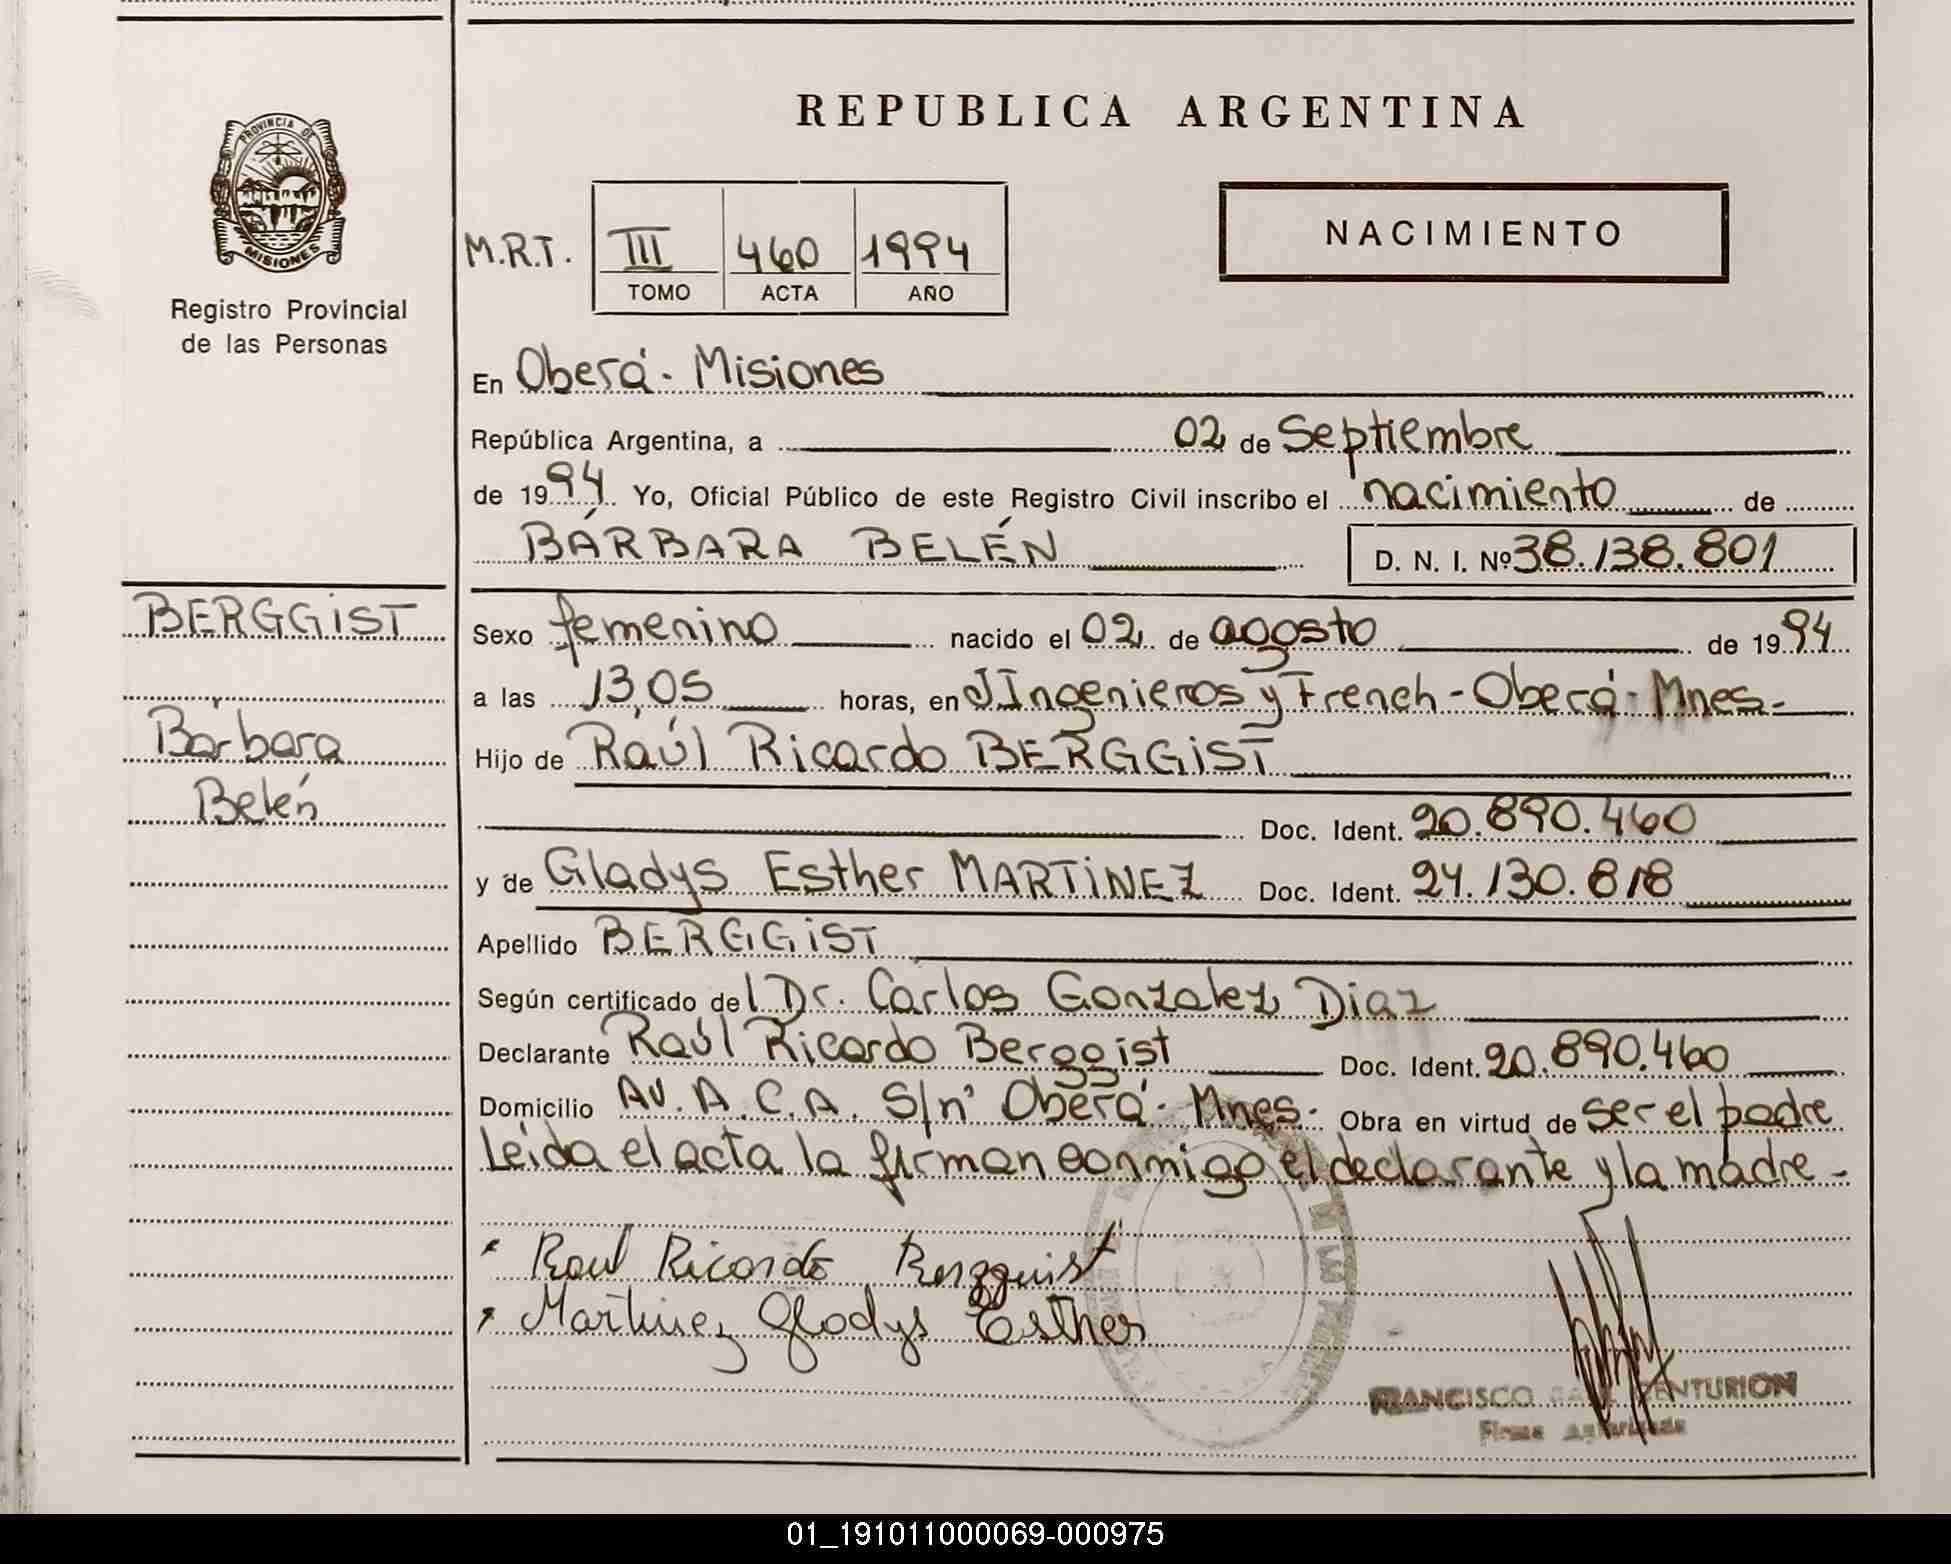 REPUBLICA ARGENTINA
PROVINCIA DE
MISIONES
Registro Provincial
de las Personas
M.R.T. III 460 1994
TOMO ACTA AÑO
NACIMIENTO
En Oberá - Misiones
República Argentina, a 02 de Septiembre
de 1994 Yo, Oficial Público de este Registro Civil inscribo el nacimiento de
BÁRBARA BELÉN D. N. I. Nº 38.138.801
BERGGIST
Bárbara
Belén
Sexo femenino nacido el 02 de agosto de 1994
a las 13,05 horas, en J Ingenieros y French - Oberá - Mnes-
Hijo de Raúl Ricardo BERGGIST
Doc. Ident. 20.890.460
y de Gladys Esther MARTINEZ Doc. Ident. 24.130.818
Apellido BERGGIST
Según certificado del Dr. Carlos Gonzalez Diaz
Declarante Raúl Ricardo Berggist Doc. Ident. 20.890.460
Domicilio Av. A.C.A. S/nº Oberá - Mnes- Obra en virtud de ser el padre
Leida el acta la firman conmigo el declarante y la madre -
Raul Ricardo Bergguist
Martinez Gladys Esther
FRANCISCO CENTURION
Firma Autorizada
01_191011000069-000975